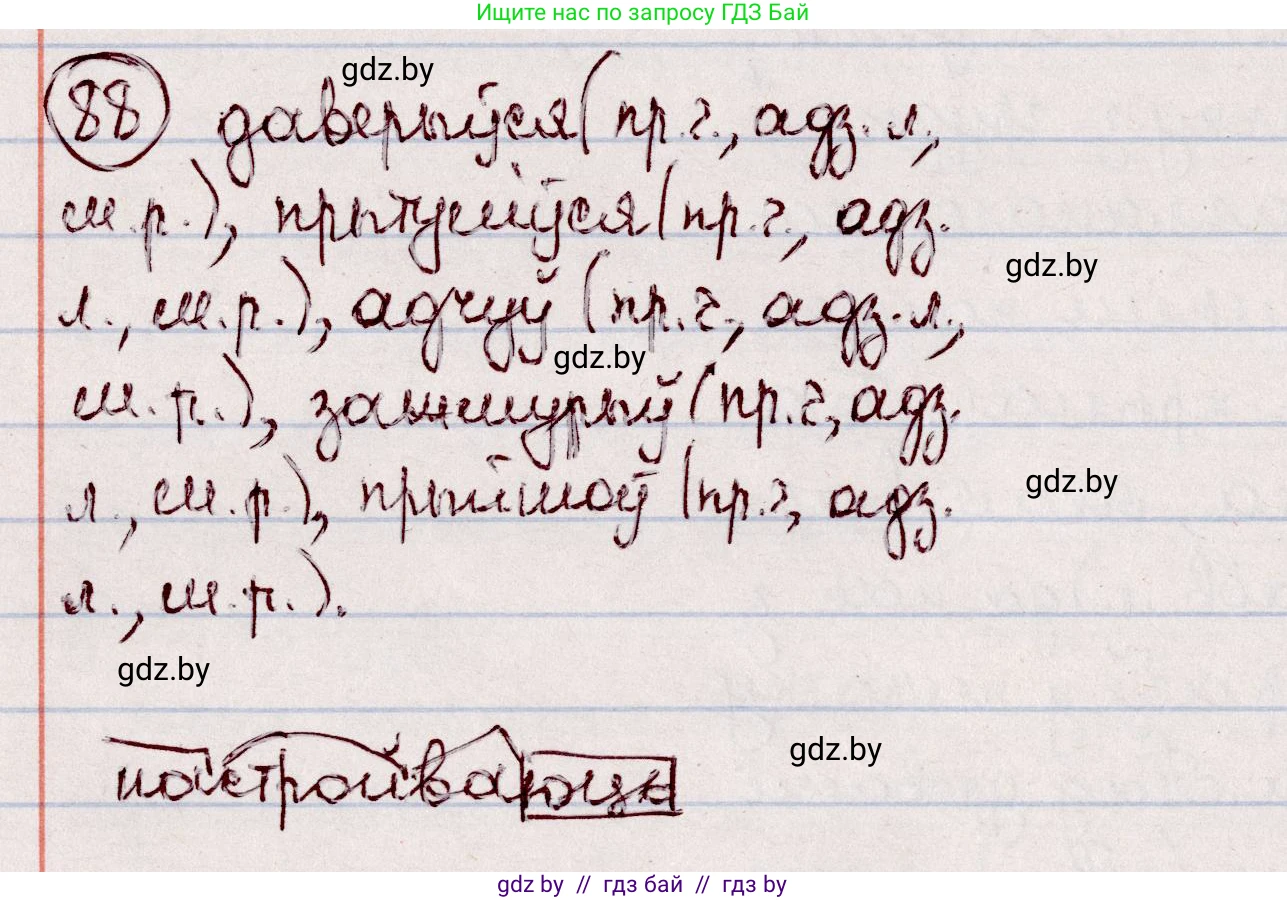 Ищите нас по запросу ГДЗ Бай
88 даверыўся (пр.г., адз. л.,
м.р.), прытуліўся (пр.г., адз.
л., м.р.), адчуў (пр.г., адз. л.,
м.р.), зажмурыў (пр.г., адз.
л., м.р.), прыйшоў (пр.г., адз.
л., м.р.).
настройваюць
gdz.by
gdz.by
gdz.by
gdz.by
gdz.by
gdz.by
gdz by // гдз бай // гдз by